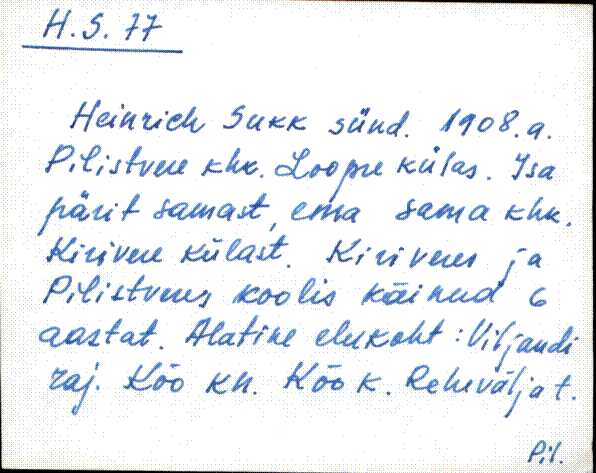 H. S. 77
Heinrich Sukk sünd. 1908. a.
Pilistvere khk. Loopre külas. Isa
pärit samast, ema sama khk.
Kirivere külast. Kiriveres ja
Pilistveres koolis käinud 6
aastat. Alatine elukoht: Viljandi
raj. Kõo kn. Kõo k. Reheväljat.
Pil.